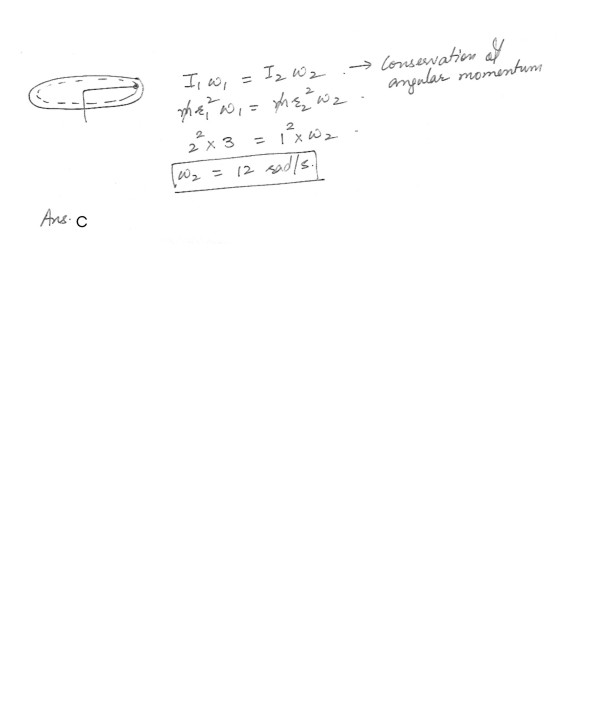 I₁ ω₁ = I₂ ω₂ . → Conservation of angular momentum
m r₁² ω₁ = m r₂² ω₂ .
2² × 3 = 1² × ω₂ .
ω₂ = 12 rad/s.
Ans. C